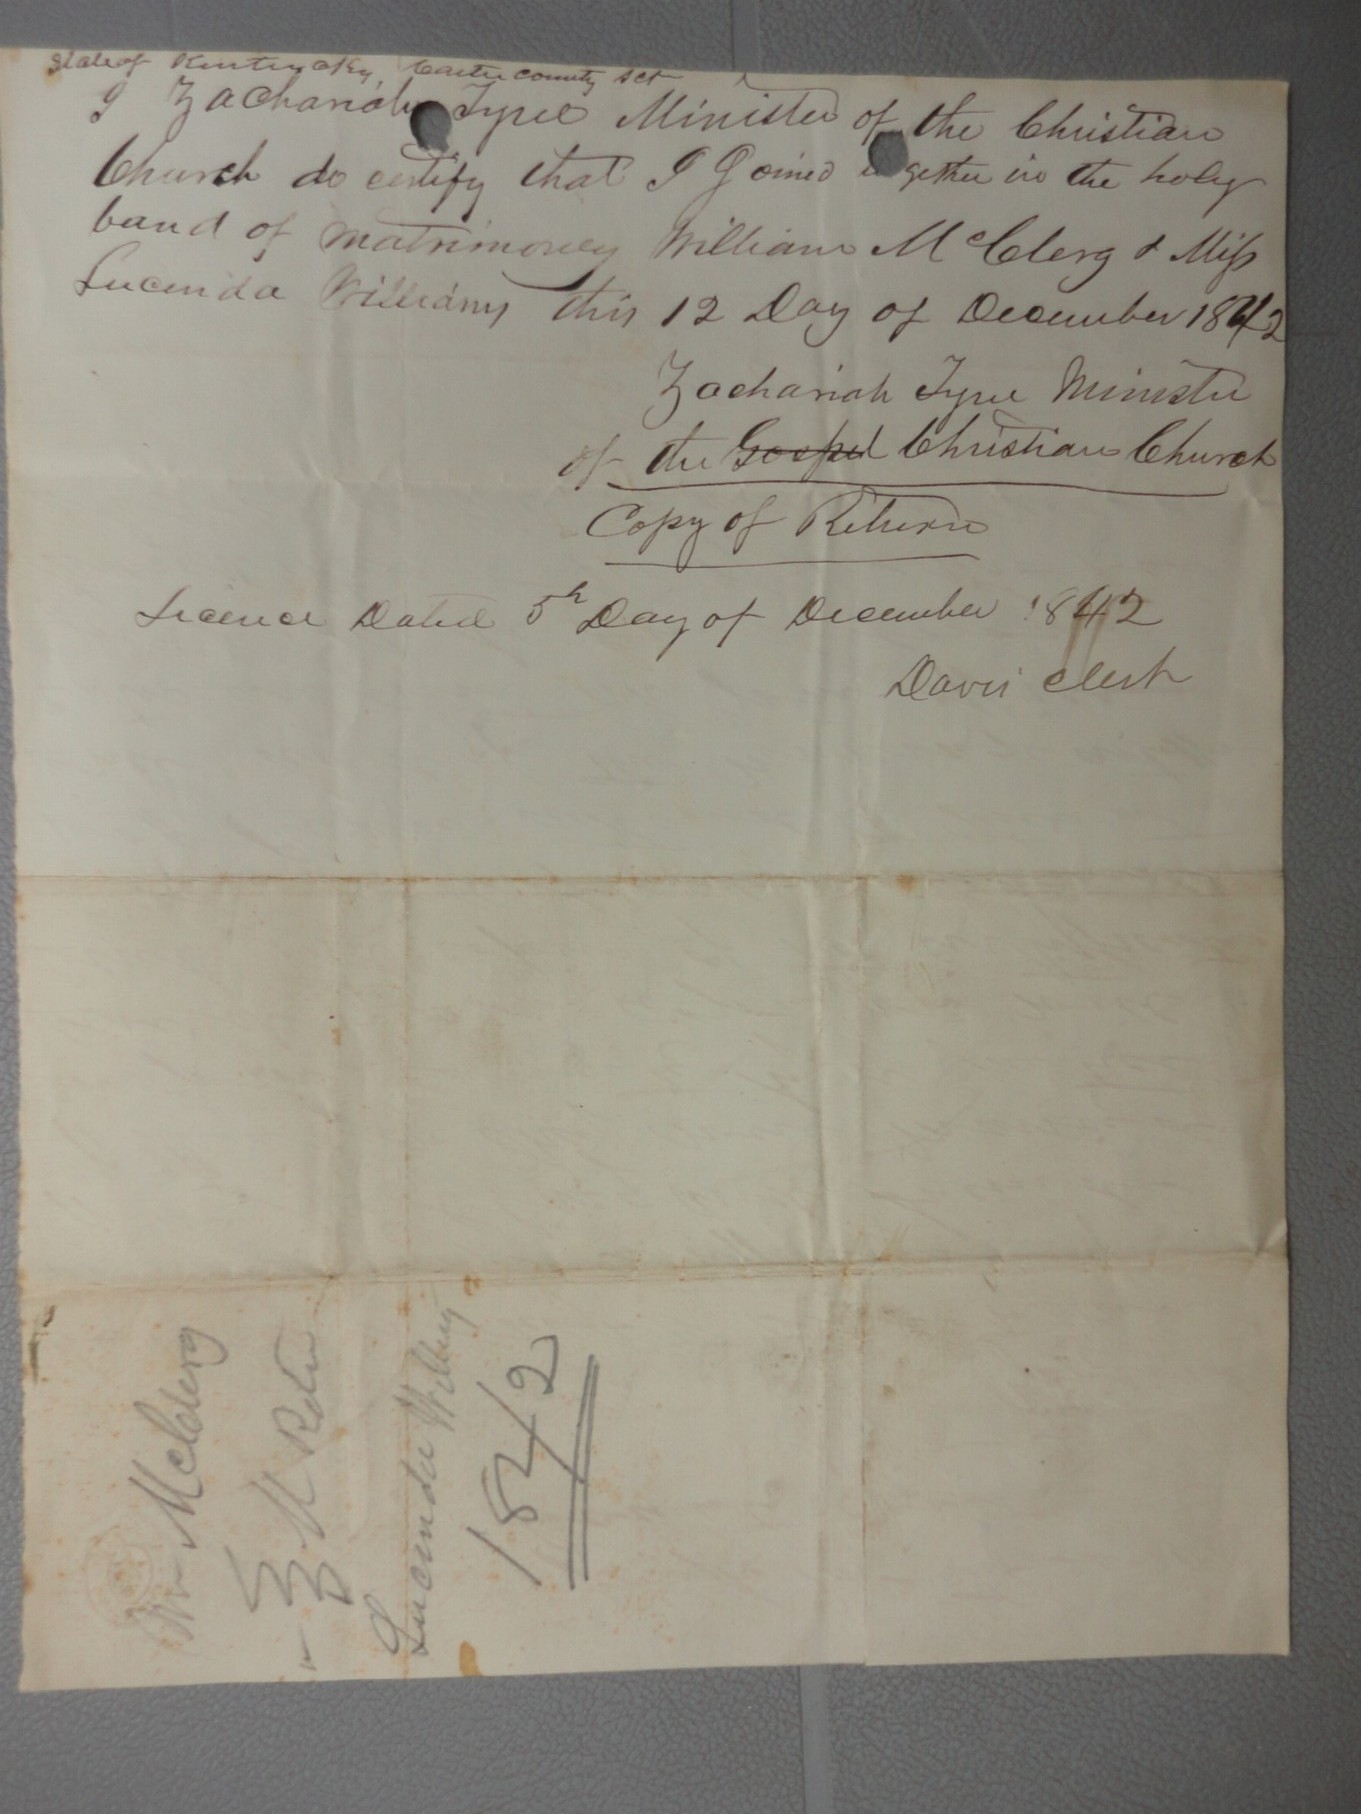 State of Kentucky, Carter county sct
I Zachariah Tyree Minister of the Christian
Church do certify that I Joined together in the holy
band of matrimoney William McClerg & Miss
Lucinda Williams this 12 Day of December 1842
Zachariah Tyree Minister
of the Gospel Christian Church
Copy of Return
Licence Dated 5th Day of December 1842
Davis Clerk
Wm McClerg
Lucinda Williams
1842